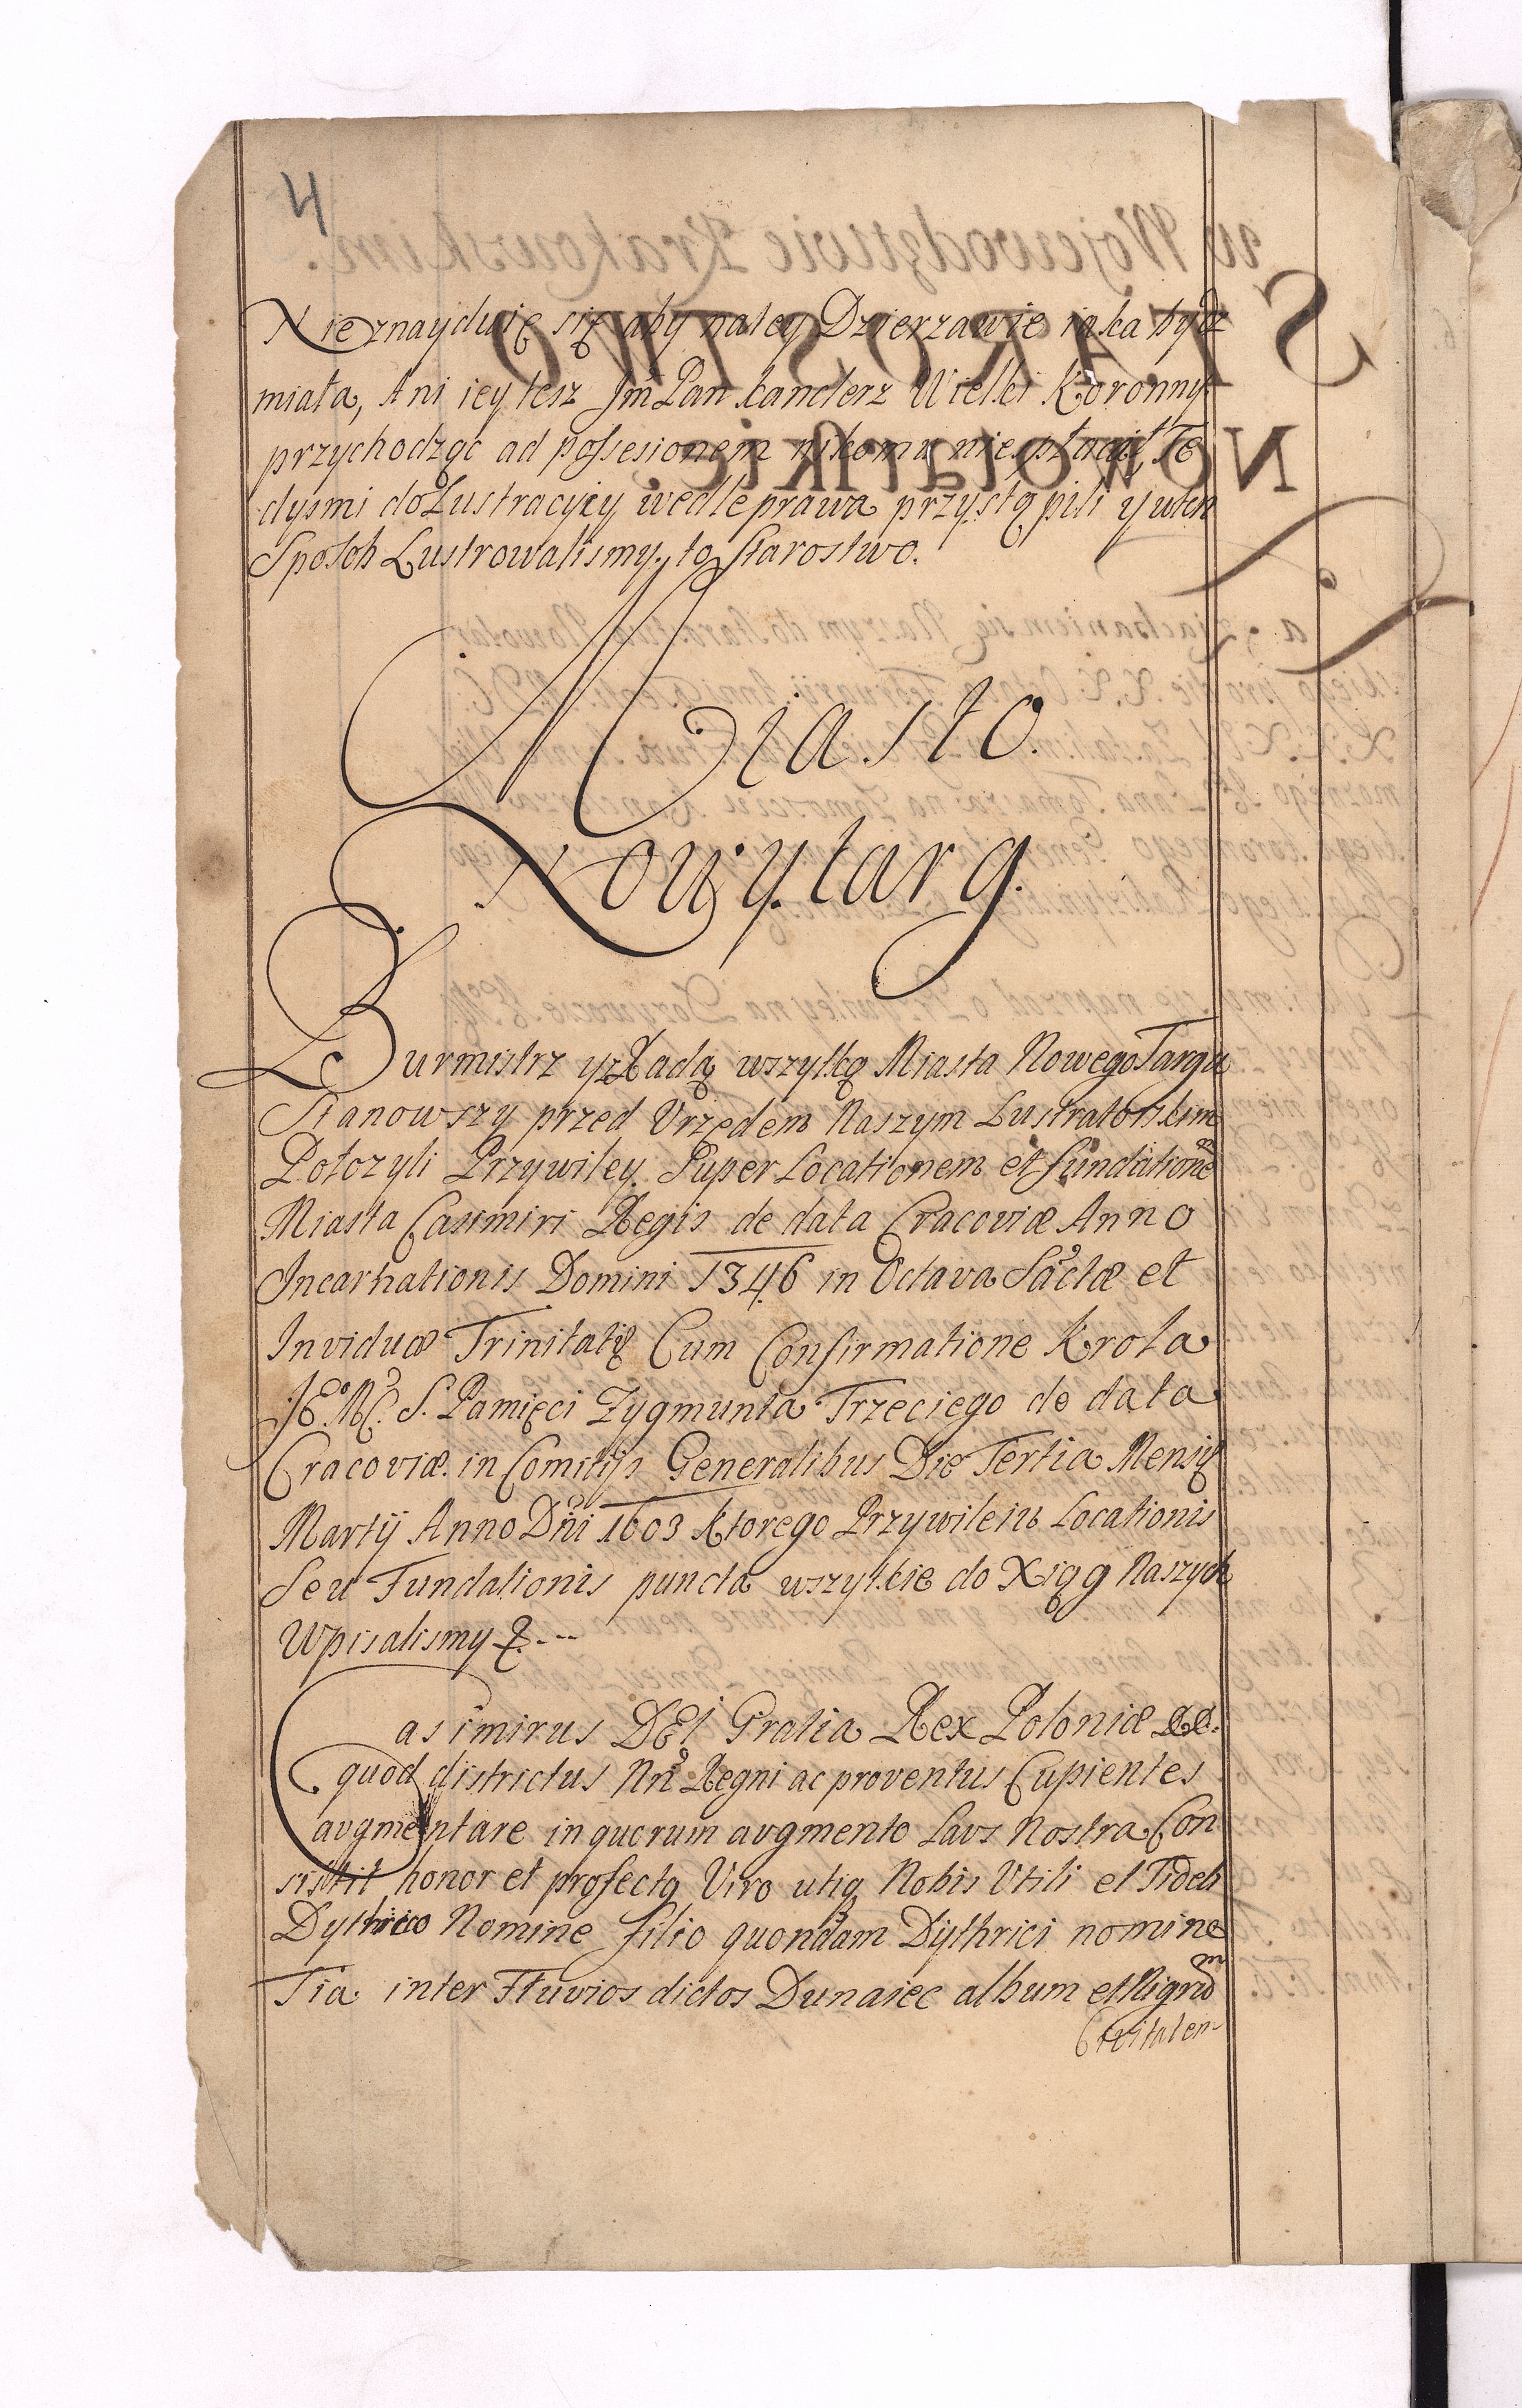 4
Nie znayduię się aby natey Dzierzawie iąka bydz
miała, Ani iey tesz Jm Pan kanclerz Wielki Koronny
przychodząc ad possesionem nikomu nie płacił, Te
dysmi do Lustracyiy wedle prawa przystąpili y wten
Sposob Lustrowalismy to Starostwo.
Miasto.
Nowytarg.
Burmistrz yz Radą wszytką Miasta Nowego Targu
Stanowszy przed Vrzędem Naszym Lustratorskim
Położyli Przywiley Super Locationem et fundatione
Miasta Casimiri Regis de data Cracoviæ Anno
Incarnationis Domini 1346 in Octava Sactæ et
Inviduæ Trinitatis Cum Confirmatione Krola
JE° M. S. Pamięci Zygmunta Trzeciego de data
Cracoviæ in Comitijs Generalibus Die Tertia Mensis
Martij Anno Dni 1603 Ktorego Przywileiu Locationis
Seu Fundationis puncta wszytkie do Xiąg Naszych
Wpisalismy
Casimirus DEI Gratia Rex Poloniæ
quod districtus Nri Regni ac proventus Cupientes
augmentare in quorum augmento Laus Nostra Con
sistit honor et profectq Viro utiq Nobis Vtili et Fideli
Dythrico Nomine filio quondam Dythrici nomine
Tia inter Fluvios dictos Dunaiec album et Nigrũ
Civitatem